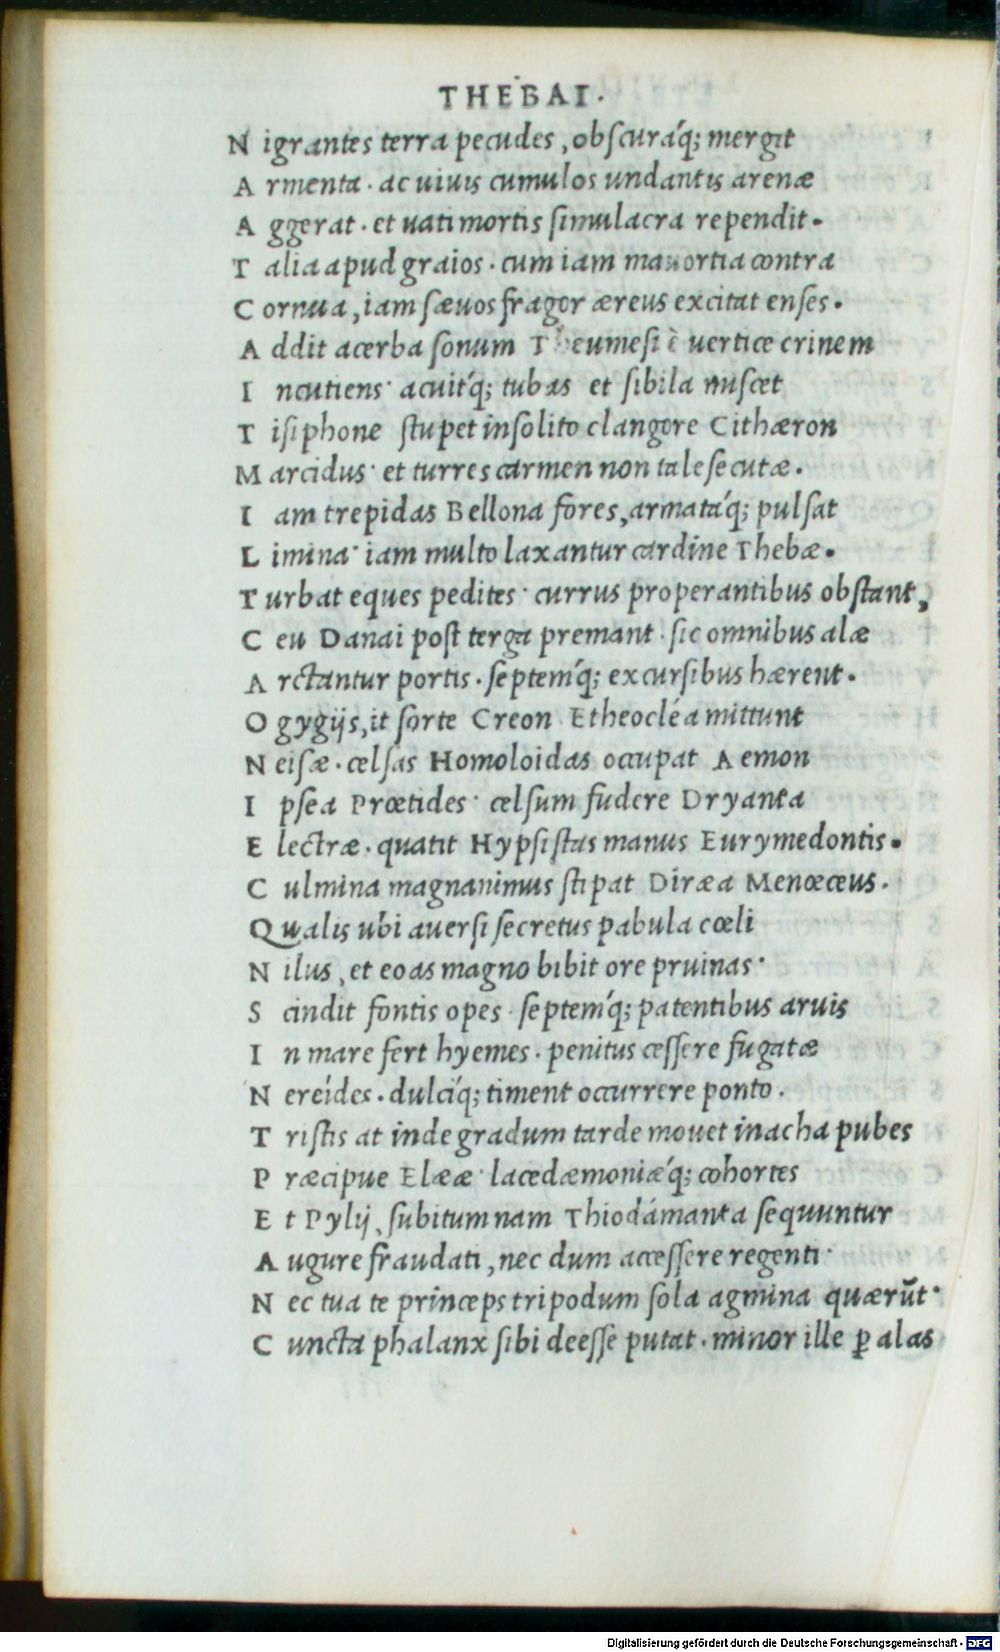 THEBAI.
N igrantes terra pecudes, obſcuráq; mergit
A rmenta. ac uiuis cumulos undantis arenæ
A ggerat. et uati mortis ſimulacra rependit.
T alia apud graios. cum iam mauortia contra
C ornua, iam ſæuos fragor æreus excitat enſes.
A ddit acerba ſonum Theumeſi è uertice crinem
I ncutiens· acuitq́; tubas et ſibila miſcet
T iſiphone ſtupet inſolito clangore Cithæron
M arcidus· et turres carmen non tale ſecutæ.
I am trepidas Bellona fores, armatáq; pulſat
L imina· iam multo laxantur cardine Thebæ.
T urbat eques pedites· currus properantibus obſtant,
C eu Danai poſt terga premant. ſic omnibus alæ
A rctantur portis. ſeptemq́; excurſibus hærent.
O gygijs, it ſorte Creon Etheocléa mittunt
N eiſæ. celſas Homoloidas occupat Aemon
I pſea Prœtides· celſum fudere Dryanta
E lectræ. quatit Hypſiſtas manus Eurymedontis.
C ulmina magnanimus ſtipat Diræa Menœceus.
Qualis ubi auerſi ſecretus pabula cœli
N ilus, et eoas magno bibit ore pruinas·
S cindit fontis opes· ſeptemq́; patentibus aruis
I n mare fert hyemes. penitus ceſſere fugatæ
N ereídes. dulciq́; timent occurrere ponto.
T riſtis at inde gradum tarde mouet inacha pubes
P ræcipue Elææ· lacedæmoniæq́; cohortes
E t Pylij, ſubitum nam Thiodámanta ſequuntur
A ugure fraudati, nec dum acceſſere regenti·
N ec tua te princeps tripodum ſola agmina quærūt·
C uncta phalanx ſibi deeſſe putat. minor ille ꝑ alas
Digitalisierung gefördert durch die Deutsche Forschungsgemeinschaft - DFG